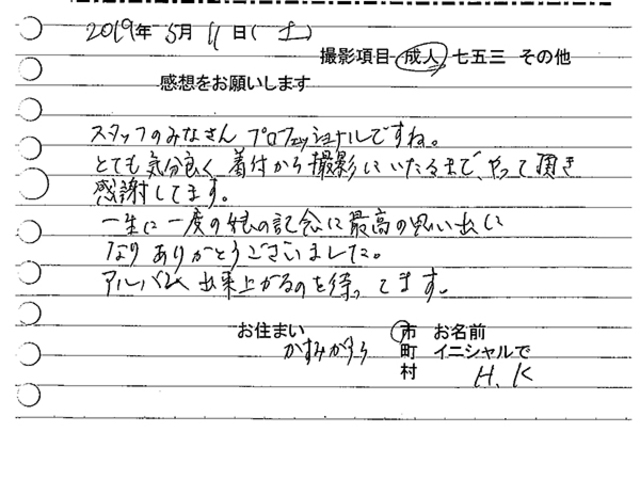 2019年 5月 11日(土)
撮影項目 成人 七五三 その他
感想をお願いします
スタッフのみなさん プロフェッショナルですね。
とても気分良く 着付から撮影にいたるまで、やって頂き
感謝してます。
一生に一度の娘の記念に最高の思い出に
なりありがとうございました。
アルバム出来上がるのを待ってます。
お住まい 市 お名前
かすみがうら 町 イニシャルで
村 H.K